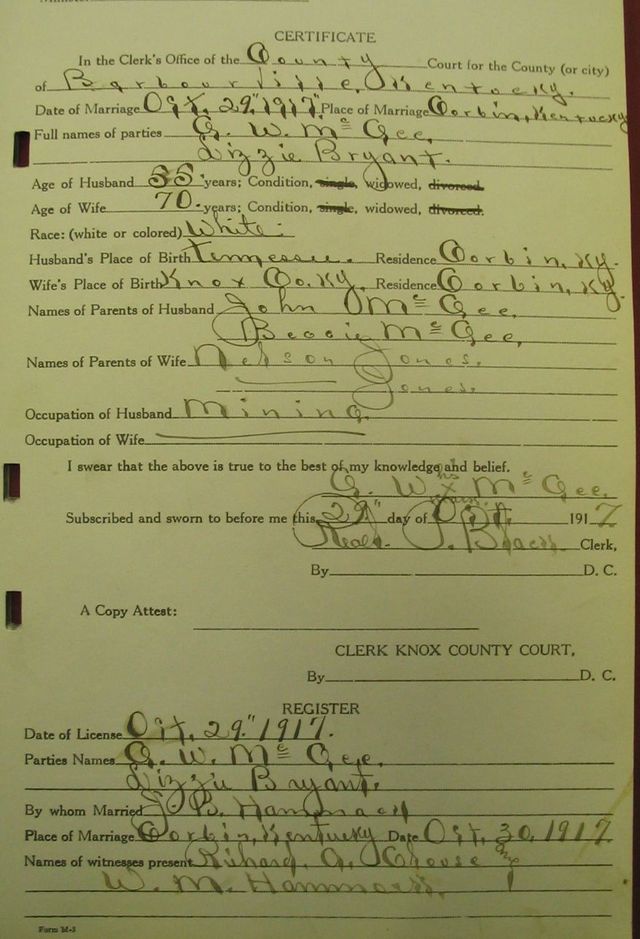 CERTIFICATE
In the Clerk's Office of the County Court for the County (or city)
of Barbourville, Kentucky.
Date of Marriage Oct. 29," 1917. Place of Marriage Corbin, Kentucky
Full names of parties G. W. McGee,
Lizzie Bryant.
Age of Husband 55 years; Condition, single, widowed, divorced.
Age of Wife 70. years; Condition, single, widowed, divorced.
Race: (white or colored) White.
Husband's Place of Birth Tennessee. Residence Corbin, Ky.
Wife's Place of Birth Knox Co. Ky. Residence Corbin, Ky.
Names of Parents of Husband John McGee,
McGee,
Names of Parents of Wife Nelson Jones.
Jones.
Occupation of Husband Mining.
Occupation of Wife
I swear that the above is true to the best of my knowledge and belief.
G. W. his X mark McGee.
Subscribed and sworn to before me this 29" day of Oct. 1917
Read P. Clerk,
By D. C.
A Copy Attest:
CLERK KNOX COUNTY COURT,
By D. C.
REGISTER
Date of License Oct. 29." 1917.
Parties Names G. W. McGee.
Lizzie Bryant.
By whom Married J. B. Hammack
Place of Marriage Corbin, Kentucky Date Oct. 30, 1917
Names of witnesses present Richard G. Crouse &
W. M. Hammack.
Form M-3